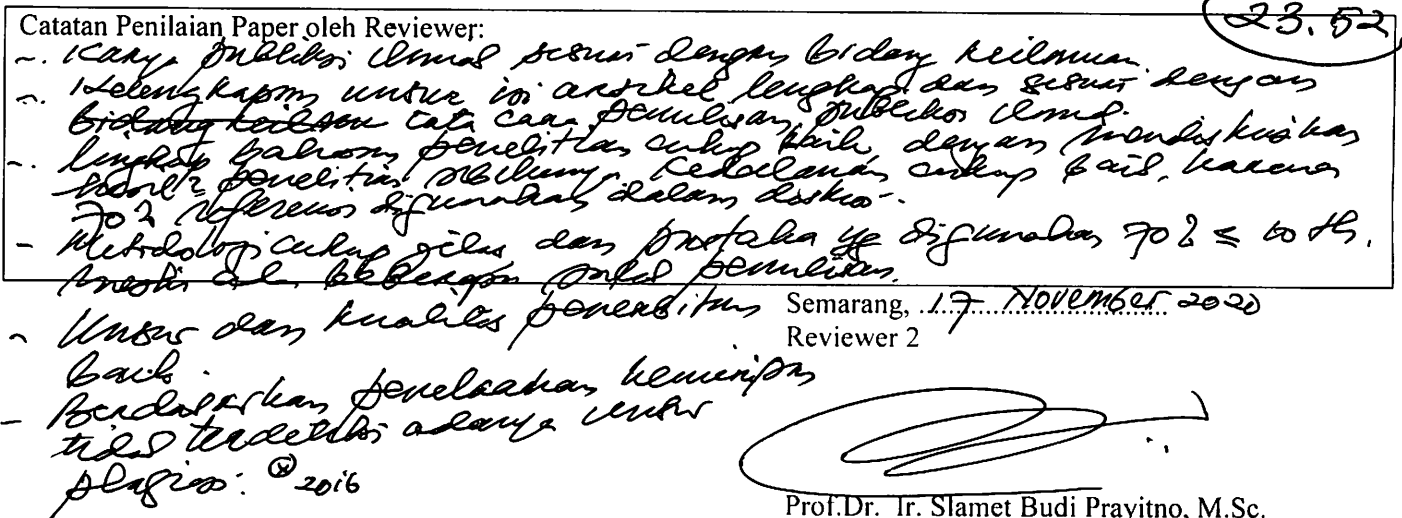 23.52
Catatan Penilaian Paper oleh Reviewer:
~. Karya publikasi ilmiah sesuai dengan bidang keilmuan.
~. Kelengkapan unsur isi artikel lengkap dan sesuai dengan
bidang keilmuan tata cara penulisan publikasi ilmiah.
~. lingkup bahasan penelitian cukup baik dengan mendiskusikan
hasil2 penelitian sebelumnya. Kedalaman cukup baik, karena
70% referensi digunakan dalam diskusi.
- Metodologi cukup jelas dan pustaka yg digunakan 70% ≤ 10 th.
meski ada beberapa penulisan.
- Unsur dan kualitas penerbitan
baik.
Semarang, 17 November 2020
Reviewer 2
- Berdasarkan penelaahan kemiripan
tidak terdeteksi adanya unsur
plagiasi. 2016
Prof.Dr. Ir. Slamet Budi Prayitno, M.Sc.